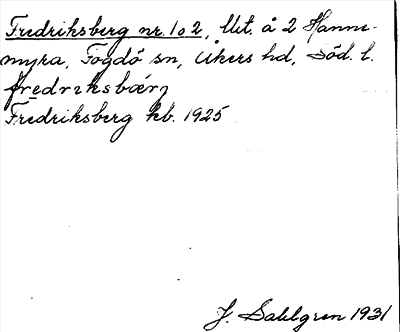 Fredriksberg nr. 1 o 2, Utt. å 2 Hanne-
myra, Fogdö sn, Åkers hd, Söd. l.
frędrıksbærj
Fredriksberg kb. 1925
J. Sahlgren 1931